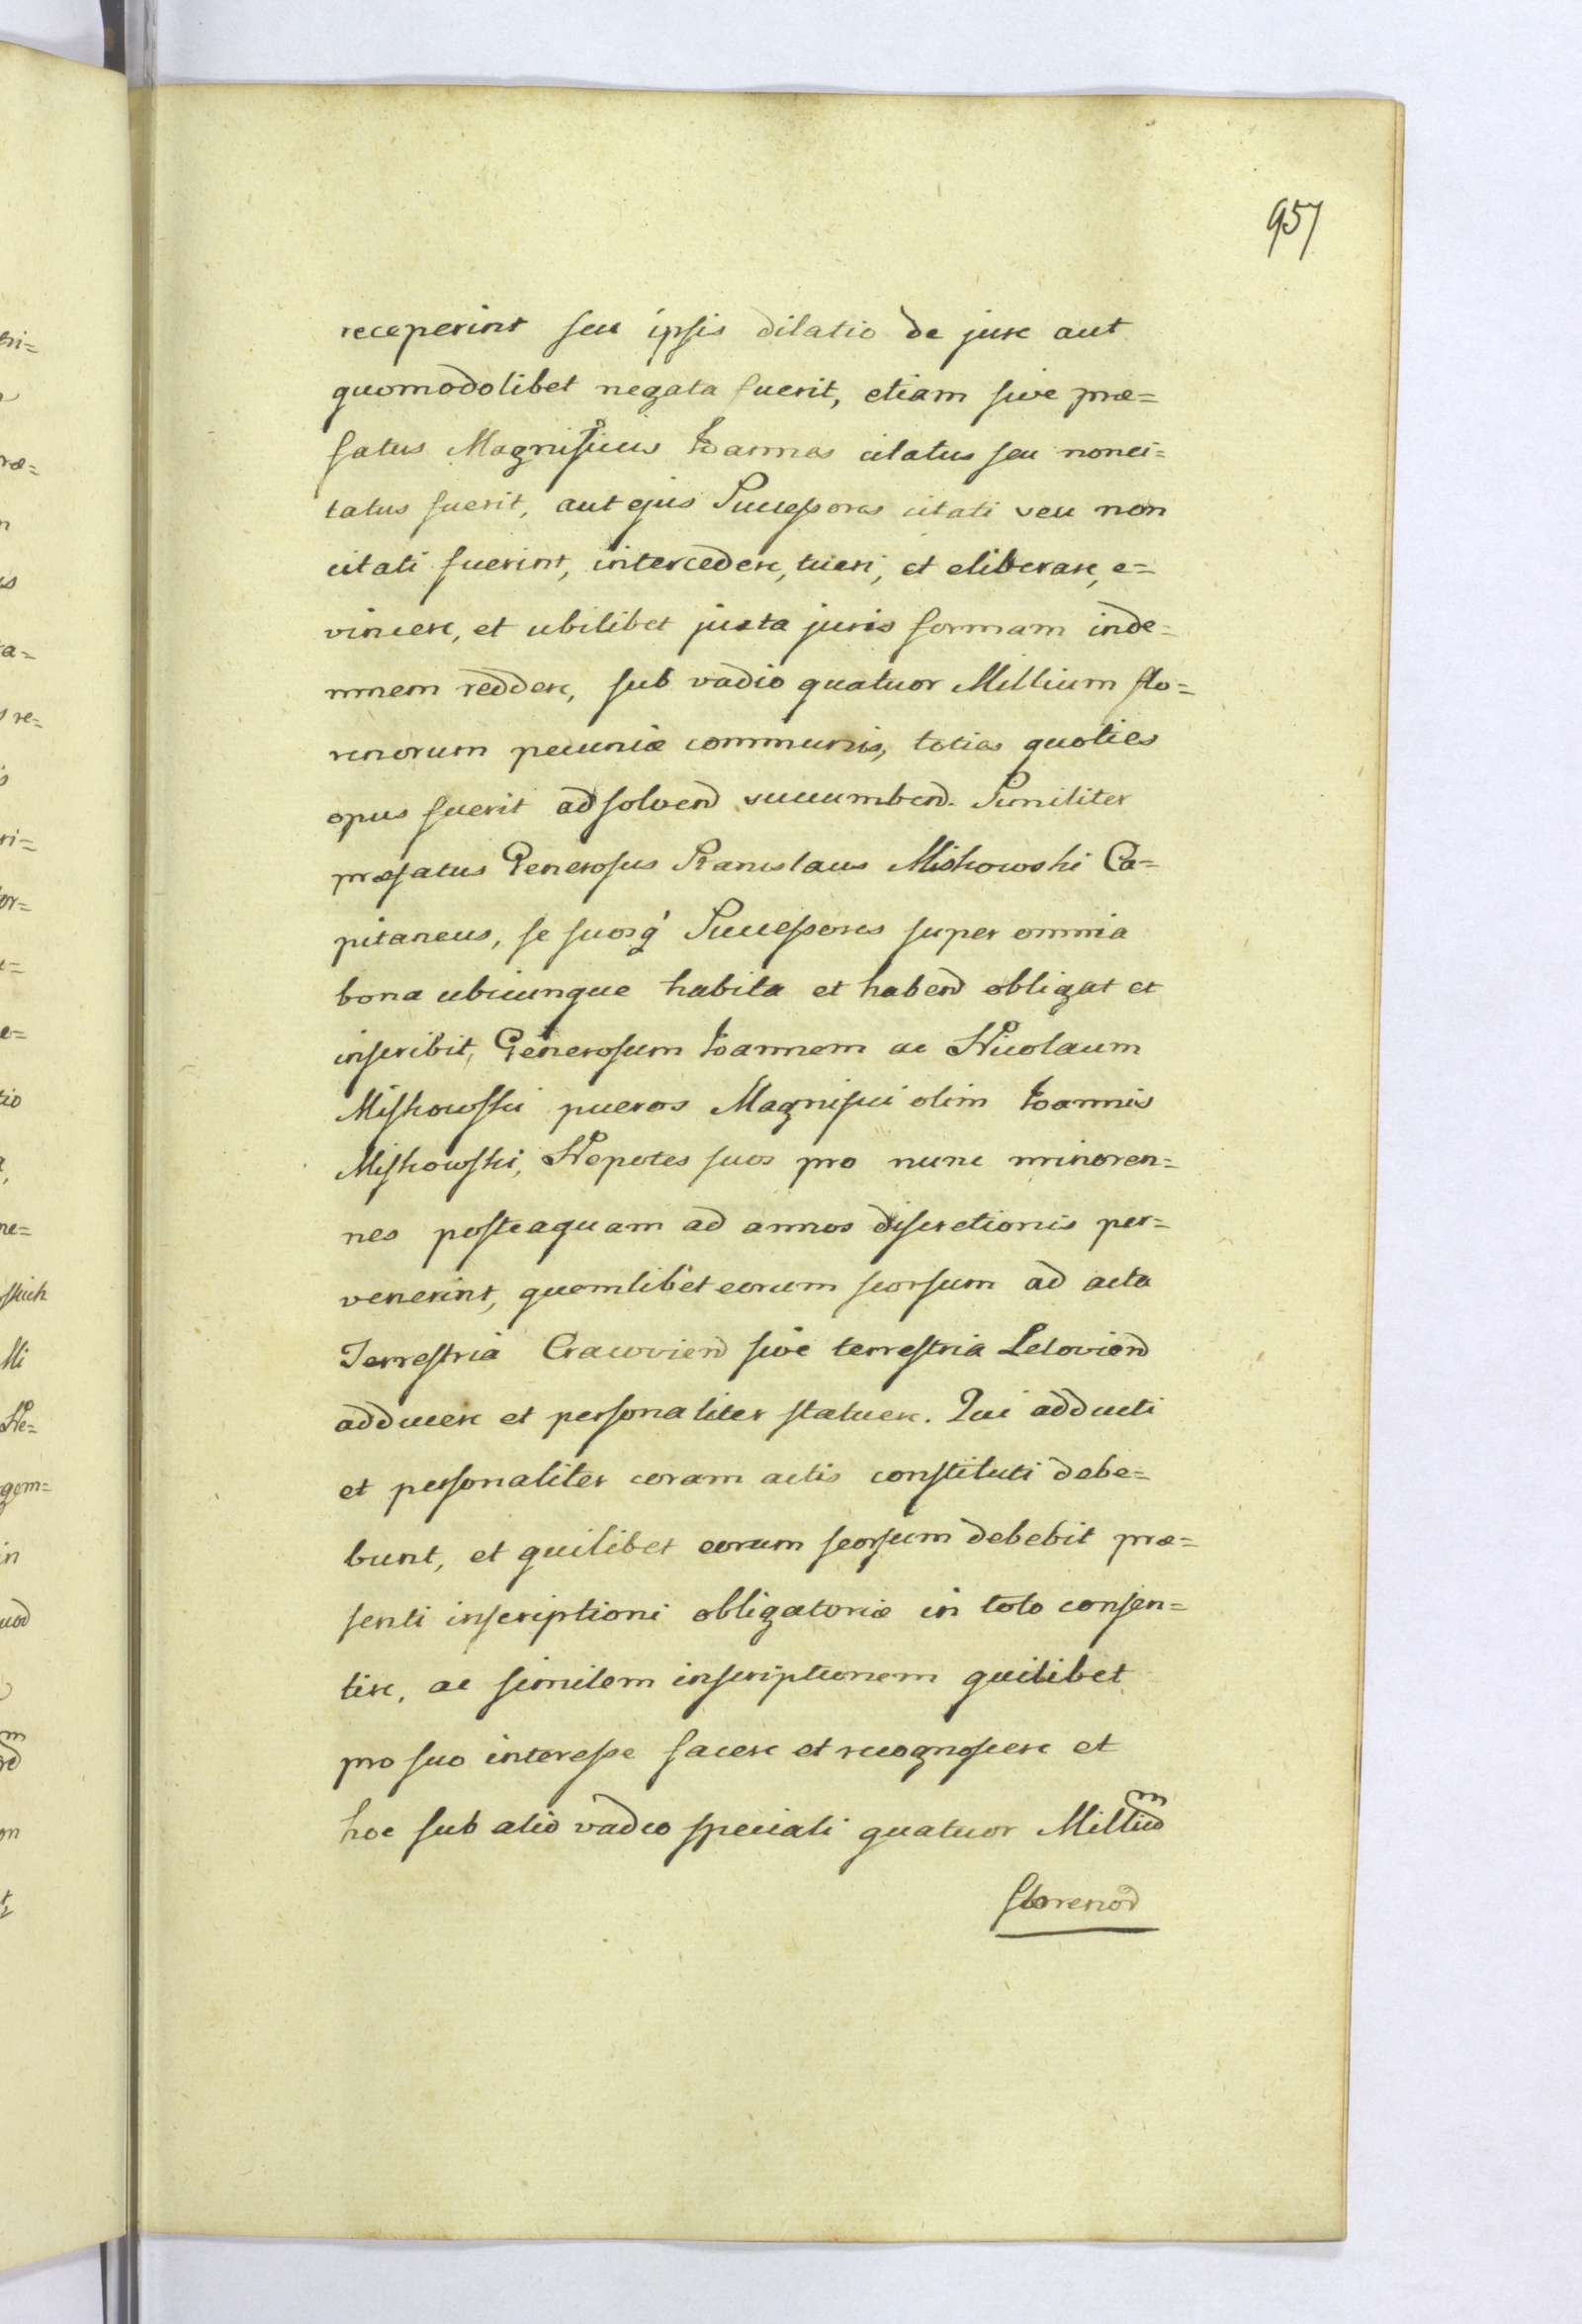 957
receperint seu ipsis dilatio de jure aut
quomodolibet negata fuerit, etiam sive præ=
fatus Magnificus Ioannes citatus seu nonci=
tatus fuerit, aut ejus Successores citati seu non
citati fuerint, intercedere, tueri, et eliberare, e=
vincere, et ubilibet juxta juris formam inde=
mnem reddere, sub vadio quatuor Millium flo=
renorum pecuniæ communis, toties quoties
opus fuerit adsolvend succumbend. Similiter
præfatus Generosus Stanislaus Miskowski Ca=
pitaneus, se suosq' Successores super omnia
bona ubicunque habita et habend obligat et
inscribit, Generosum Ioannem ac Nicolaum
Miskowski pueros Magnifici olim Ioannis
Miskowski, Nepotes suos pro nunc minoren=
nes posteaquam ad annos discretionis per=
venerint, quemlibet eorum seorsum ad acta
Terrestria Cracoviend sive terrestria Leloviend
adducere et personaliter statuere. Qui adducti
et personaliter coram actis constituti debe=
bunt, et quilibet eorum seorsum debebit præ=
senti inscriptioni obligatoriæ in toto consen=
tire, ac similem inscriptionem quilibet
pro suo interesse facere et recognoscere et
hoc sub alio vadio speciali quatuor Milliũ
florenod
tri=
ræ=
n
is
ra=
s re=
is
ri=
or=
e=
tio
ne=
Mi
Ne=
gem=
in
uod
on